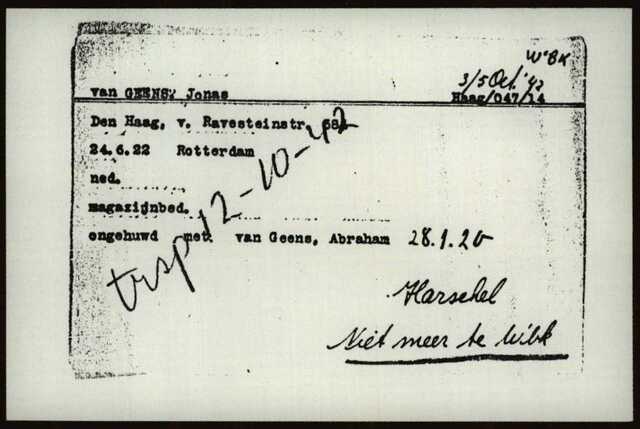 WBK
3/5 Oct. 42
van GEENS, Jonas Haag/047/14
Den Haag, v. Ravesteinstr.
24.6.22 Rotterdam
ned.
magazijnbed.
ongehuwd met van Geens, Abraham 28.1.20
trsp 12-10-42
Harschel
Niet meer te Wbk